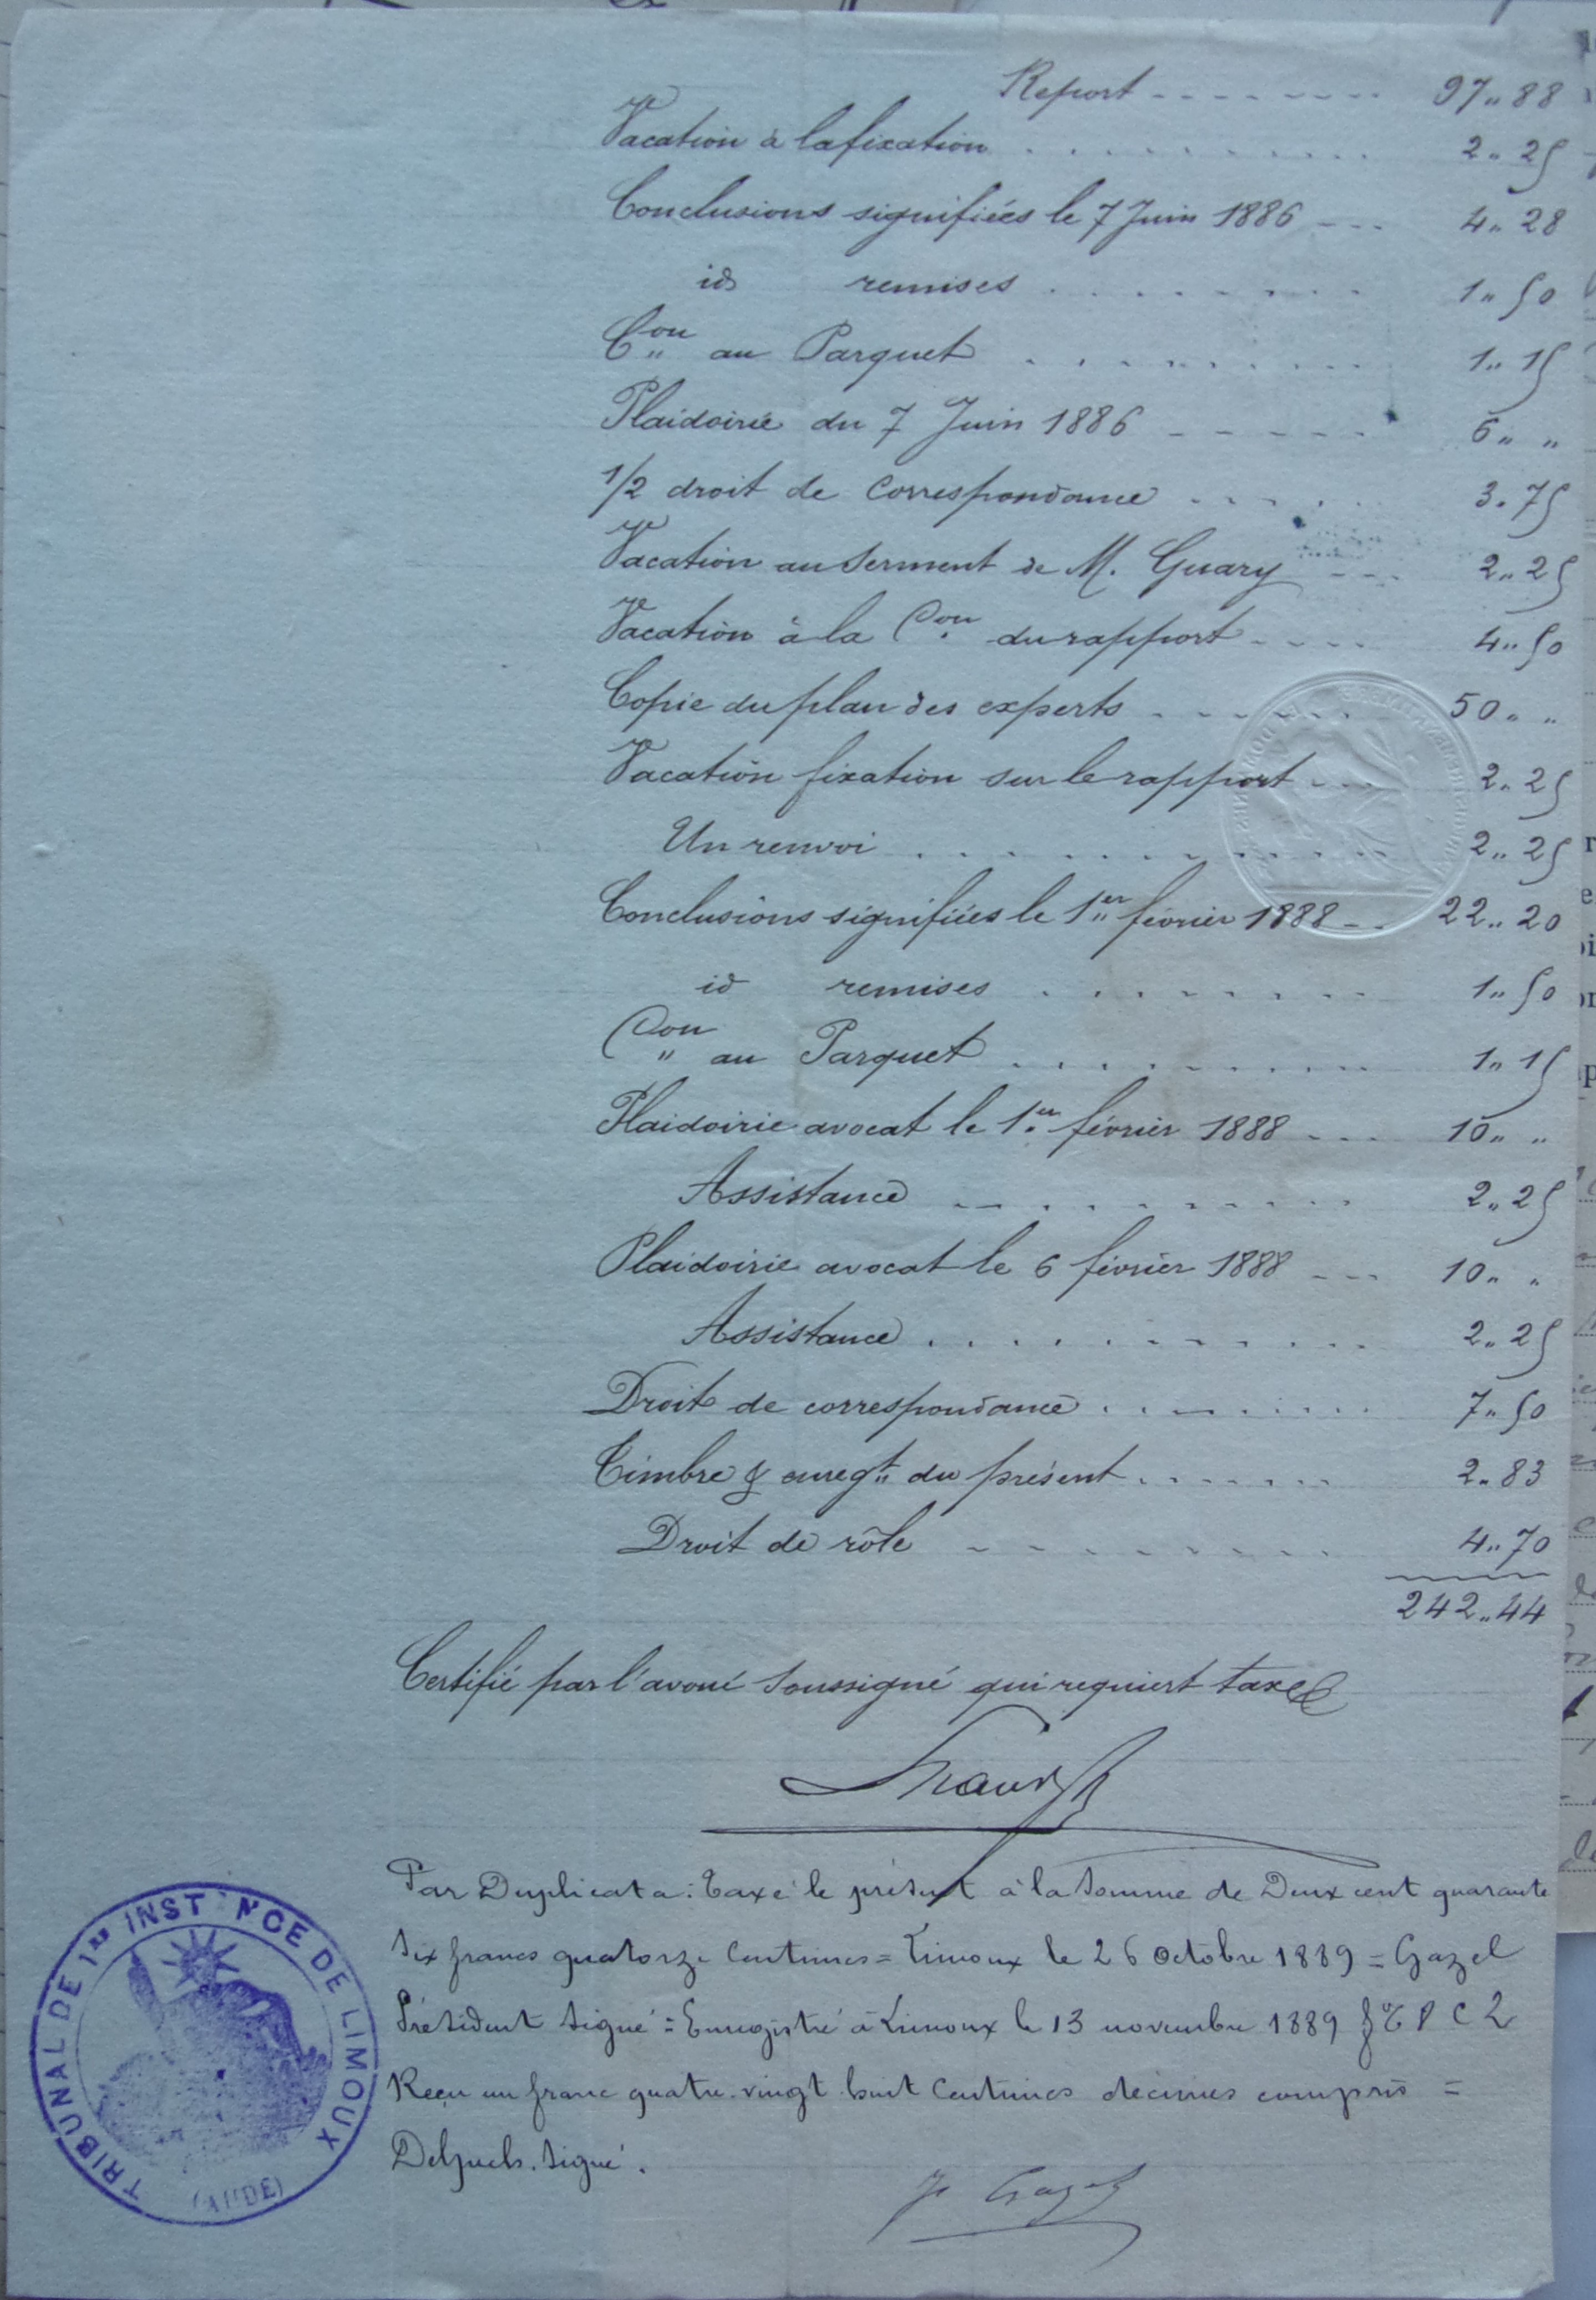 Report - - - - - - - - 97 „ 88
Vacation à la fixation . . . . . . . . . . 2 „ 25
Conclusions signifiées le 7 Juin 1886 - - - 4 „ 28
id remises . . . . . . . . 1 „ 50
Con au Parquet . . . . . . . . . 1 „ 15
Plaidoirie du 7 Juin 1886 - - - - - 6 „ „
1/2 droit de Correspondance . . . . . 3 . 75
Vacation au Serment de M. Guary - - - 2 „ 25
Vacation à la Con du rapport - - - - 4 „ 50
Copie du plan des experts . - - . - - 50 „ „
Vacation fixation sur le rapport - - - 2 „ 25
Un renvoi . . . . . . . . . . . 2 „ 25
Conclusions signifiées le 1er février 1888 - . 22 „ 20
id remises . . . . . . . . . 1 „ 50
Con au Parquet . . . . . . . . . . 1 „ 15
Plaidoirie avocat le 1er février 1888 - - - 10 „ „
Assistance - . . . . . . . . . 2 „ 25
Plaidoirie avocat le 6 février 1888 - - - 10 „ „
Assistance . . . . . . . . . . . 2 „ 25
Droit de correspondance . . . . . . . . 7 „ 50
Timbre & enregt du présent . . . . . . . 2 „ 83
Droit de rôle - - - - - - - - - 4 „ 70
242 „ 44
Certifié par l'avoué soussigné qui requiert taxe
Par Duplicata : Taxé le présent à la Somme de Deux cent quarante
Six francs quatorze Centimes = Limoux le 26 Octobre 1889 = Gazel
Président Signé = Enregistré à Limoux le 13 novembre 1889 C 2
Reçu un franc quatre-vingt huit Centimes décimes compris =
Signé.
Gazel
TRIBUNAL DE 1re INST NCE DE LIMOUX
(AUDE)